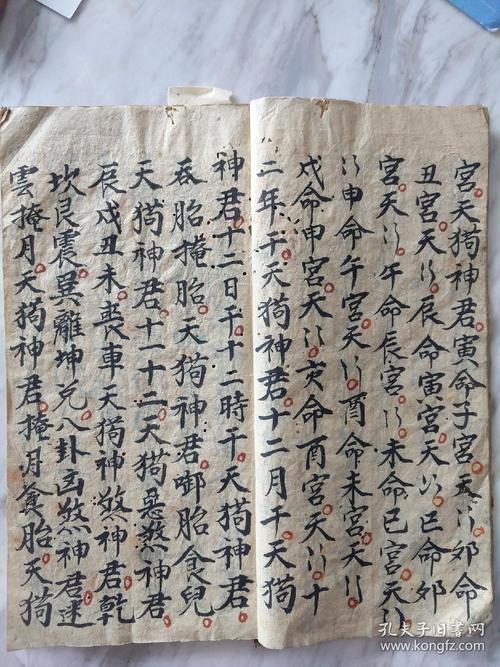 宮天狗神君寅命子宮天〻卯命
丑宮天〻辰命寅宮天〻巳命卯
宮天〻午命辰宮〻未命巳宮天〻
〻申命午宮天〻酉命未宮天〻
戌命申宮天〻亥命酉宮天〻十
二年千天狗神君十二月千天狗
神君十二日千十二時千天狗神君
吞胎掩胎天狗神君啣胎食兒
天狗神君十一十二天狗惡煞神君
辰戌丑未喪車天狗神煞神君乾
坎艮震巽離坤兌八卦凶煞神君迷
雲掩月天狗神君掩月食胎天狗
孔夫子旧书网
www.kongfz.com